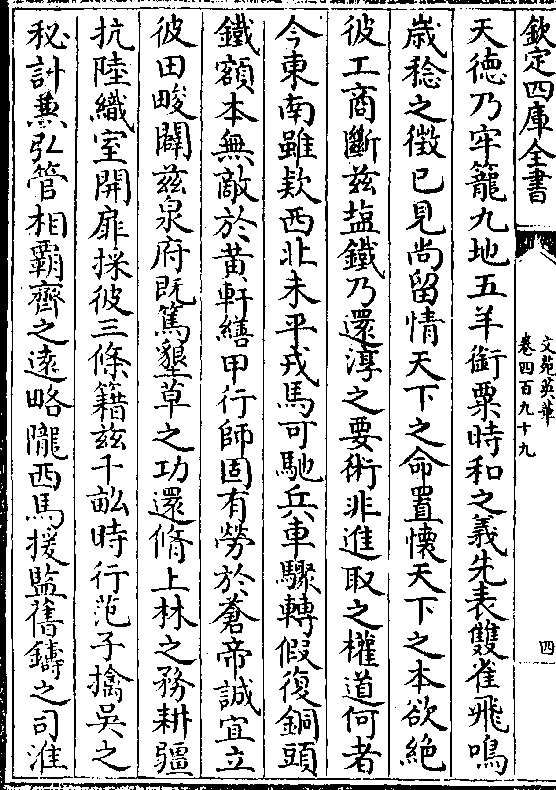 欽定四庫全書
文苑英華
卷四百九十九
四
天德乃牢籠九地五羊銜粟時和之義先表雙雀飛鳴
歳稔之徴已見尚留情天下之命置懷天下之本欲絶
彼工商斷兹塩鐵乃還淳之要術非進取之權道何者
今東南雖欵西北未平戎馬可馳兵車驟轉假復銅頭
鐵額本無敵於黄軒繕甲行師固有勞於蒼帝誠宜立
彼田畯闢兹泉府既篤墾草之功還脩上林之務耕疆
抗陸織室開扉採彼三條籍兹千畝時行范子擒吳之
秘計兼弘管相覇齊之遠略隴西馬援監舊鑄之司淮